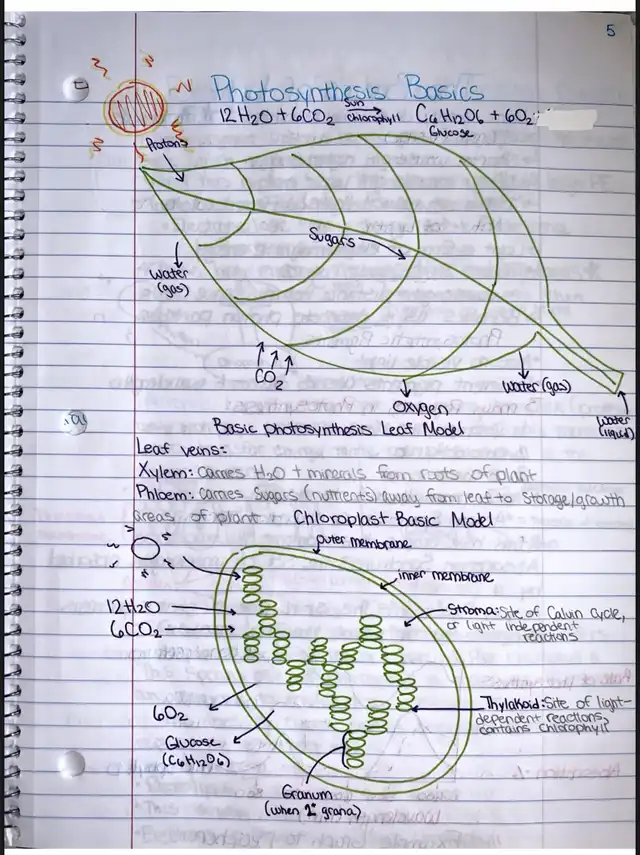 5
Photosynthesis Basics
12H₂O + 6CO₂ sun chlorophyll → C₆H₁₂O₆ + 6O₂
Glucose
Protons
Sugars
Water
(gas)
CO₂
Oxygen
Water (gas)
Water
(liquid)
Basic photosynthesis Leaf Model
Leaf veins:
Xylem: carries H₂O + minerals from roots of plant
Phloem: carries sugars (nutrients) away from leaf to storage/growth
areas of plant
Chloroplast Basic Model
outer membrane
inner membrane
12H₂O
6CO₂
Stroma: Site of Calvin cycle,
or light independent
reactions
6O₂
Glucose
(C₆H₁₂O₆)
Thylakoid: Site of light-
dependent reactions,
contains chlorophyll
Granum
(when 1 grana)